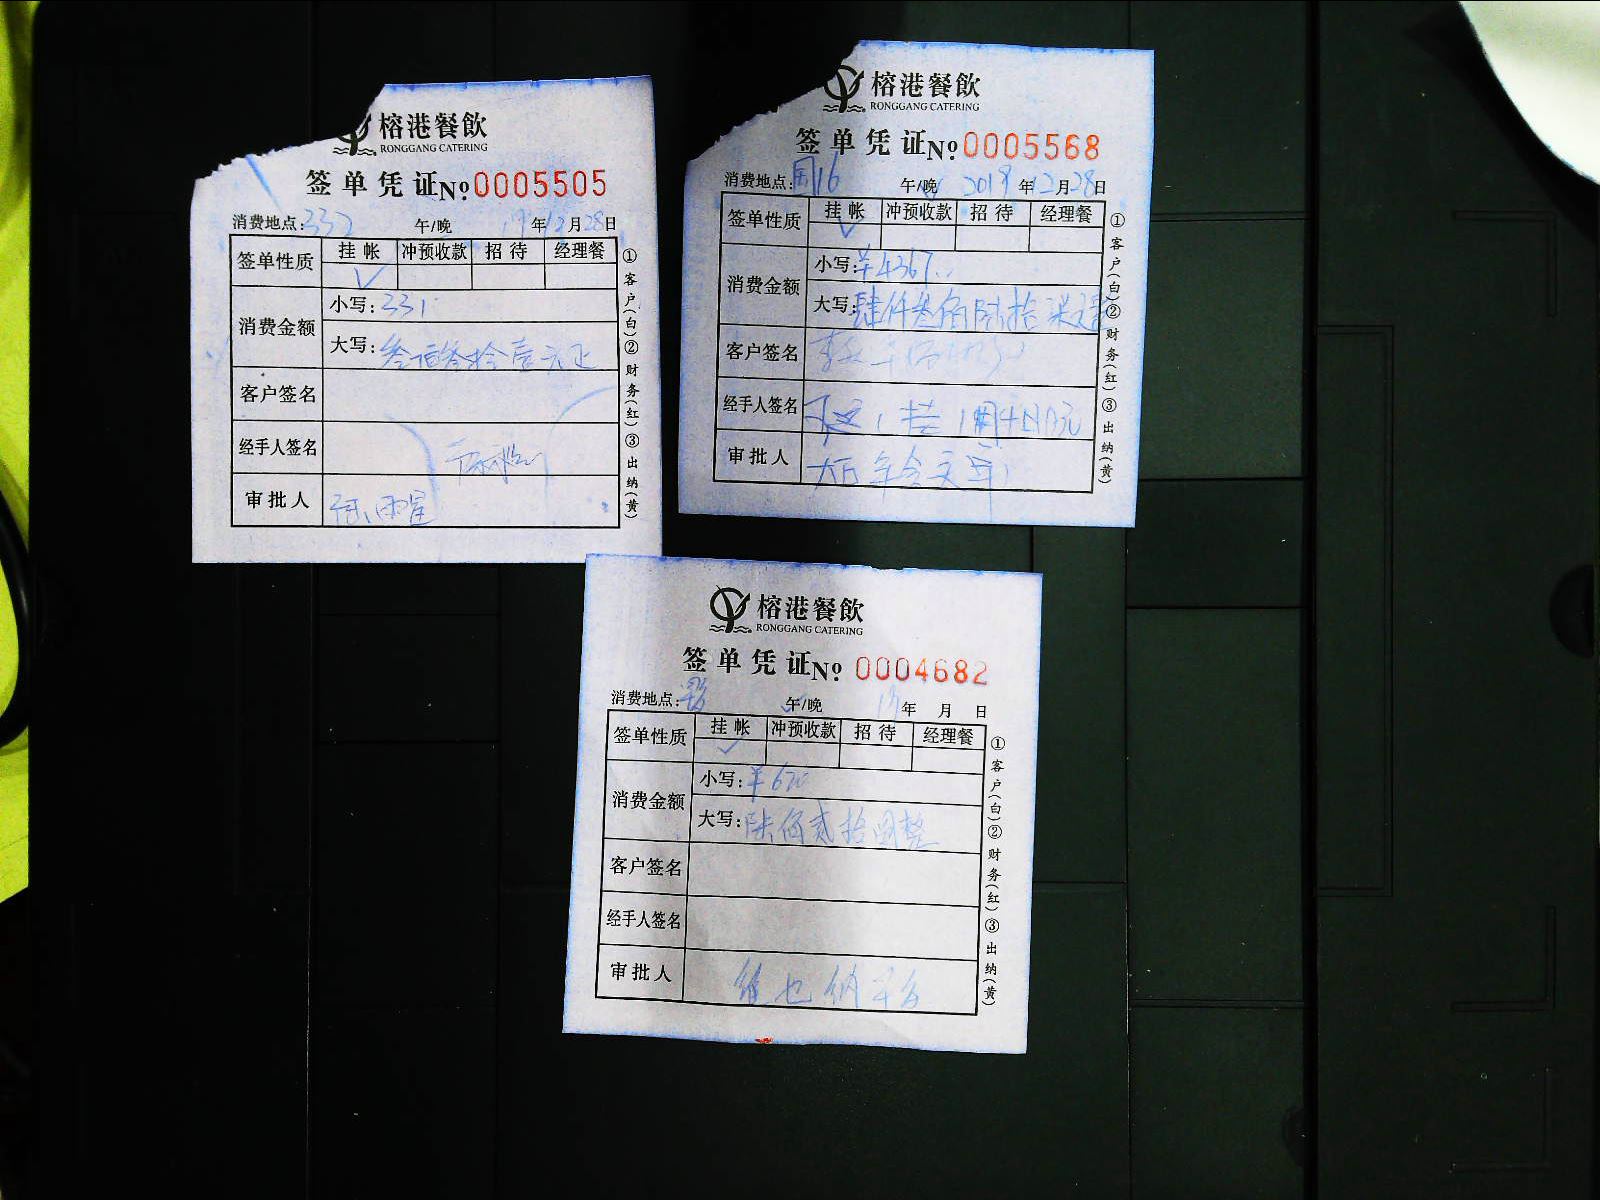 榕港餐飲
RONGGANG CATERING
签单凭证No.0005505
消费地点:332 午/晚 19年12月28日
签单性质 挂帐 冲预收款 招待 经理餐
✓
消费金额
小写:331
大写:叁佰叁拾壹元正
客户签名
经手人签名
审批人
①客户(白)②财务(红)③出纳(黄)
榕港餐飲
RONGGANG CATERING
签单凭证No.0005568
消费地点:周16 午/晚✓ 2019年12月28日
签单性质 挂帐 冲预收款 招待 经理餐
✓
消费金额
小写:¥4367
大写:肆仟叁佰陆拾柒元
客户签名
经手人签名
审批人
①客户(白)②财务(红)③出纳(黄)
榕港餐飲
RONGGANG CATERING
签单凭证No.0004682
消费地点: 午/晚 19年 月 日
签单性质 挂帐 冲预收款 招待 经理餐
✓
消费金额
小写:¥620
大写:陆佰贰拾圆整
客户签名
经手人签名
审批人 维也纳
①客户(白)②财务(红)③出纳(黄)